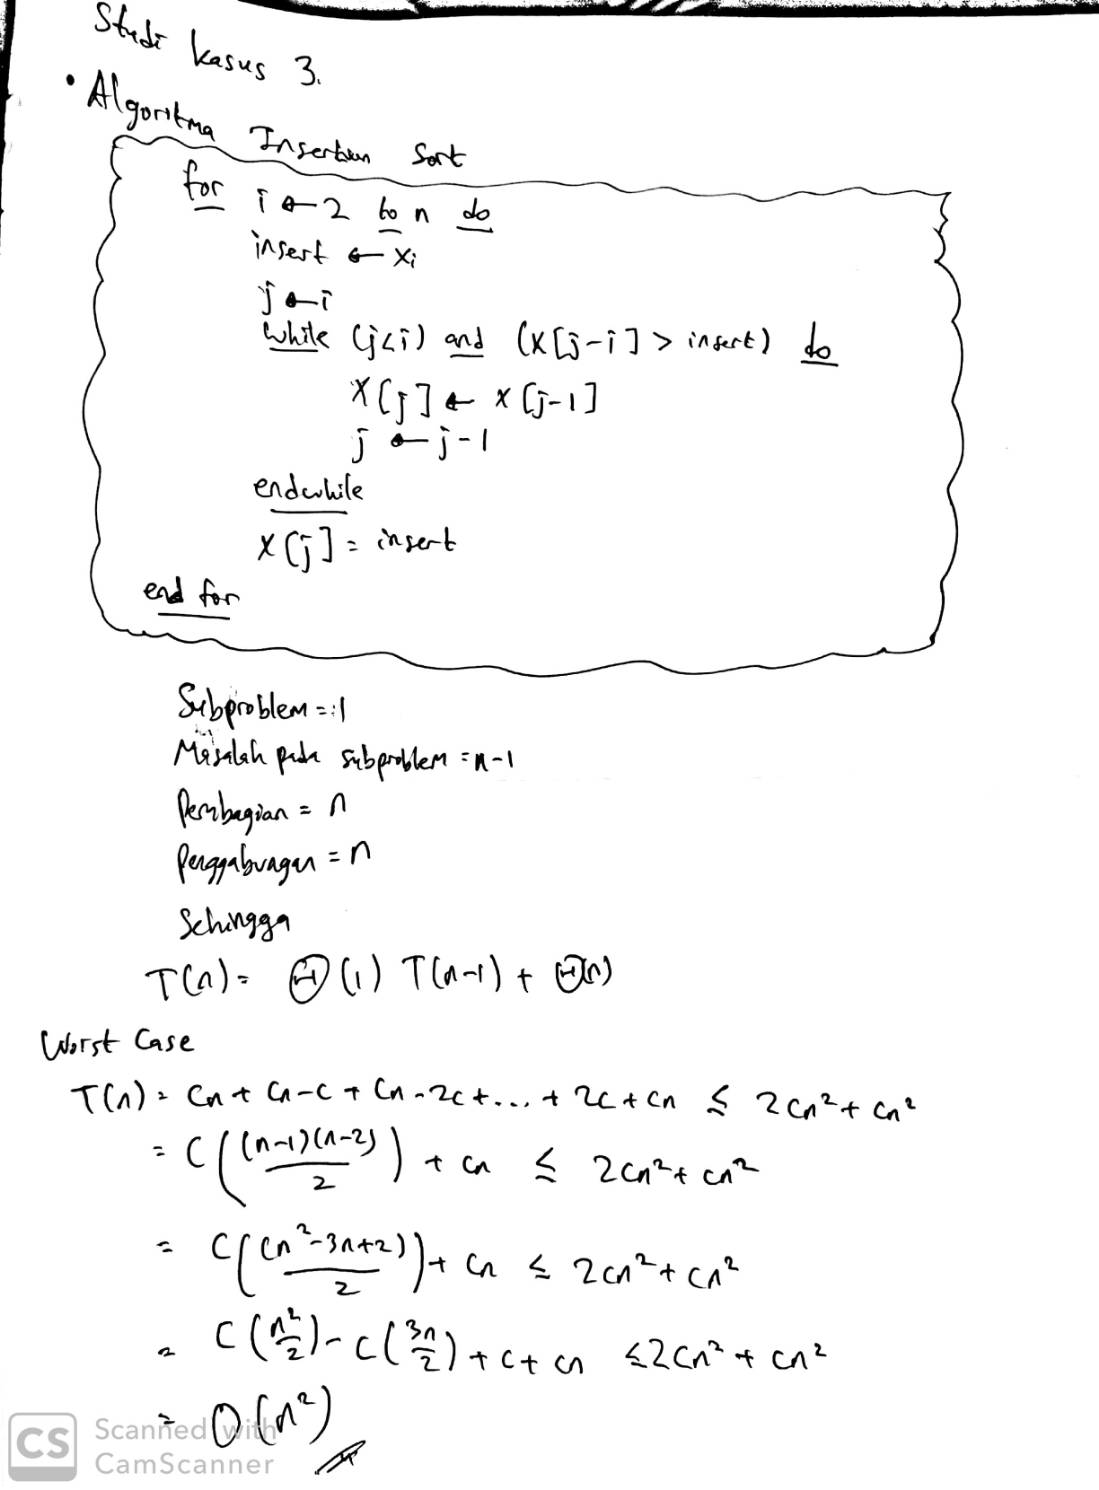 Studi kasus 3.
• Algoritma Insertion Sort
for i ← 2 to n do
insert ← xi
j ← i
while (j<i) and (x[j-i] > insert) do
x[j] ← x[j-1]
j ← j-1
endwhile
x[j] = insert
end for
Subproblem = 1
Masalah pada subproblem = n-1
Pembagian = n
Penggabungan = n
Sehingga
T(n) = Θ(1) T(n-1) + Θ(n)
Worst Case
T(n) = Cn + Cn-C + Cn-2C + ... + 2C + Cn ≤ 2Cn² + Cn²
= C((n-1)(n-2)/2) + Cn ≤ 2Cn² + Cn²
= C((n²-3n+2)/2) + Cn ≤ 2Cn² + Cn²
= C(n²/2) - C(3n/2) + C + Cn ≤ 2Cn² + Cn²
= O(n²)
CS Scanned with
CamScanner